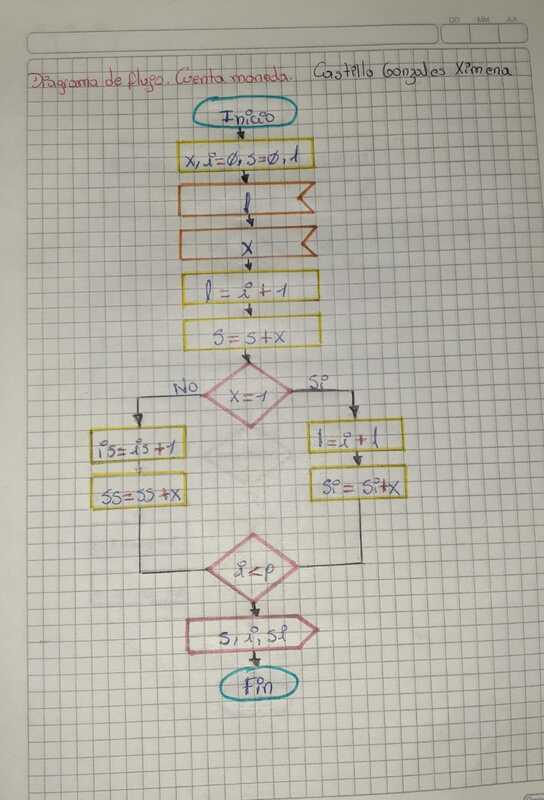 DD MM AA
Diagrama de flujo. Cuenta moneda. Castillo Gonzales Ximena
Inicio
x, i=0, s=0, 1
l
x
l = i + 1
S = S + X
No
Si
X = 1
is = is + 1
l = i + l
SS = SS + X
Si = Si + X
i < p
s, i, si
Fin